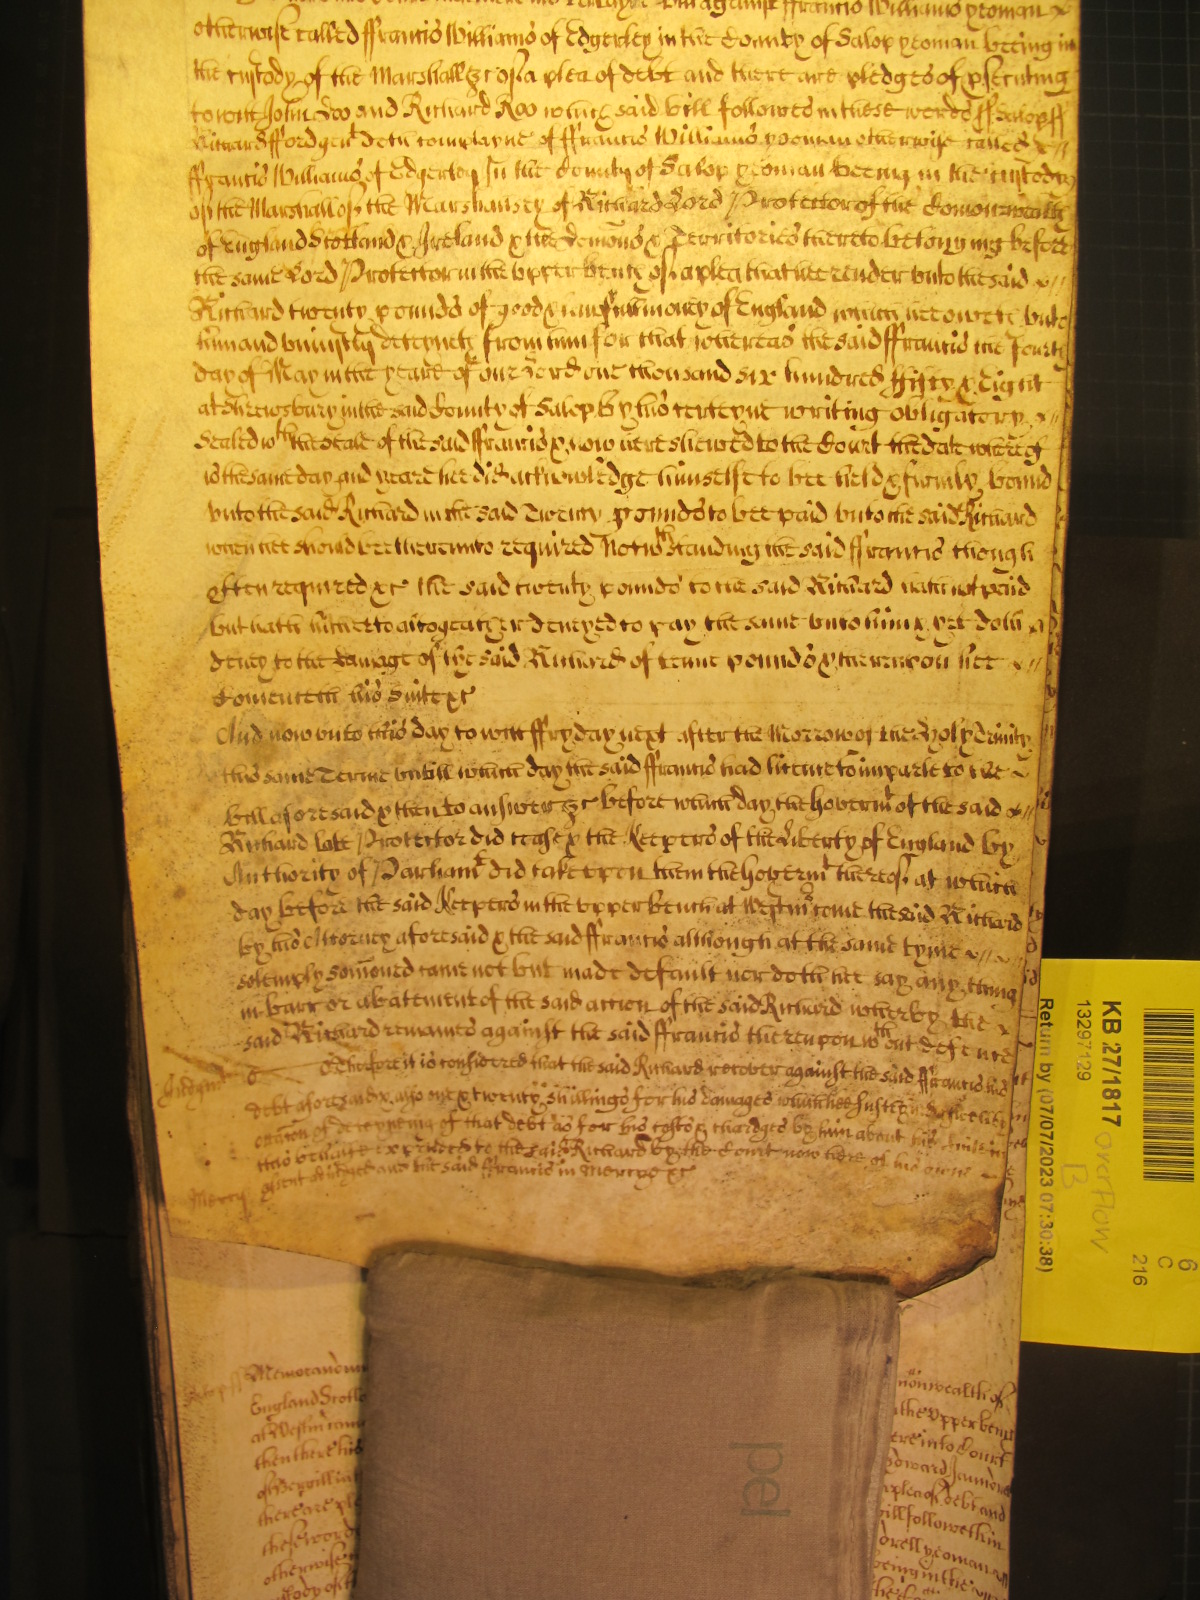 against ffrancis Williams yeoman
otherwise called ffrancis Williams of Edgerley in the County of Salop yeoman beeing in
the custody of the Marshall &c of a plea of debt and there are pledges of psecuting
to witt John Doo and Richard Roo which said bill followes in these wordes ss Salop ss
Richard fford gent doth complayne of ffrancis Williams yeoman otherwise called
ffrancis Williams of Edgerley In the County of Salop yeoman beeing in the custody
of the Marshall of the Marshalsey of Richard Lord Protector of the Comonwealth
of England Scotland & Ireland & the Domons & Territories thereto belonging before
the same Lord Protector in the upper bench of a plea that hee render unto the said
Richard twenty pounds of good & lawfull money of England which hee oweth unto
him and uniustly deteyneth from him for that whereas the said ffrancis the fourth
day of May in the yeare of our Lord one thousand six hundred fifty & eight
at Shrewsbury in the said County of Salop by his certeyne writing obligatory
sealed wth the seale of the said ffrancis & now here shewed to the Court the date whereof
is the same day and yeare hee did acknowledge himselfe to bee held & firmly bound
unto the said Richard in the said Twenty pounds to bee paid unto the said Richard
when hee should bee thereunto required Notwthstanding the said ffrancis though
often required &c the said twenty pounds to the said Richard hath not paid
but hath hitherto altogeather denyed to pay the same unto him & yet doth
deny to the damage of the said Richard of tenne pounds & thereupon hee
bringeth his suite &c
And now unto this day to witt ffryday next after the Morrow of the Holy Trinity
this same Terme untill which day the said ffrancis had licence to imparle to the
bill aforesaid & then to answer &c before which day the Governmt of the said
Richard late Protector did cease & the Keepers of the Liberty of England by
Authority of Parliamt did take upon them the Governmt thereof at which
day before the said Keepers in the upper bench at Westmr come the said Richard
by his Attorney aforesaid & the said ffrancis although at the same tyme
solemply somoned came not but made default nor doth hee say any thing
in barr or abatement of the said action of the said Richard whereby the
said Richard remaines against the said ffrancis thereupon wthout defence
Judgmt Therefore it is considered that the said Richard recover against the said ffrancis his
debt aforesaid & also one & twenty shillings for his damages which hee susteyned
occasion of deteyneing of that debt as for his costs & chardges by him about his suite in
this behalfe expended to the said Richard by the Court now here of his owne
assent adiudged and the said ffrancis in mercye &c
Mercy
Salop ss Memorandum
England Scotl
at Westmr came
then there his
there are ple
these word
otherwise
onwealth of
the upper bench
ere into Court
Edward
a plea of debt and
bill followeth in
yeoman
beeing in the
pel
KB 27/1817
13297129
Return by (07/07/2023 07:30:38)
overflow
B
6
C
216